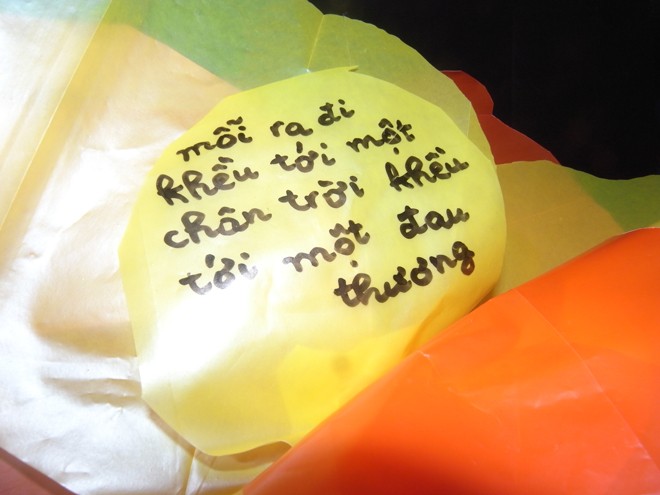 mỗi ra đi
khều tới một
chân trời khều
tới một đau
thương